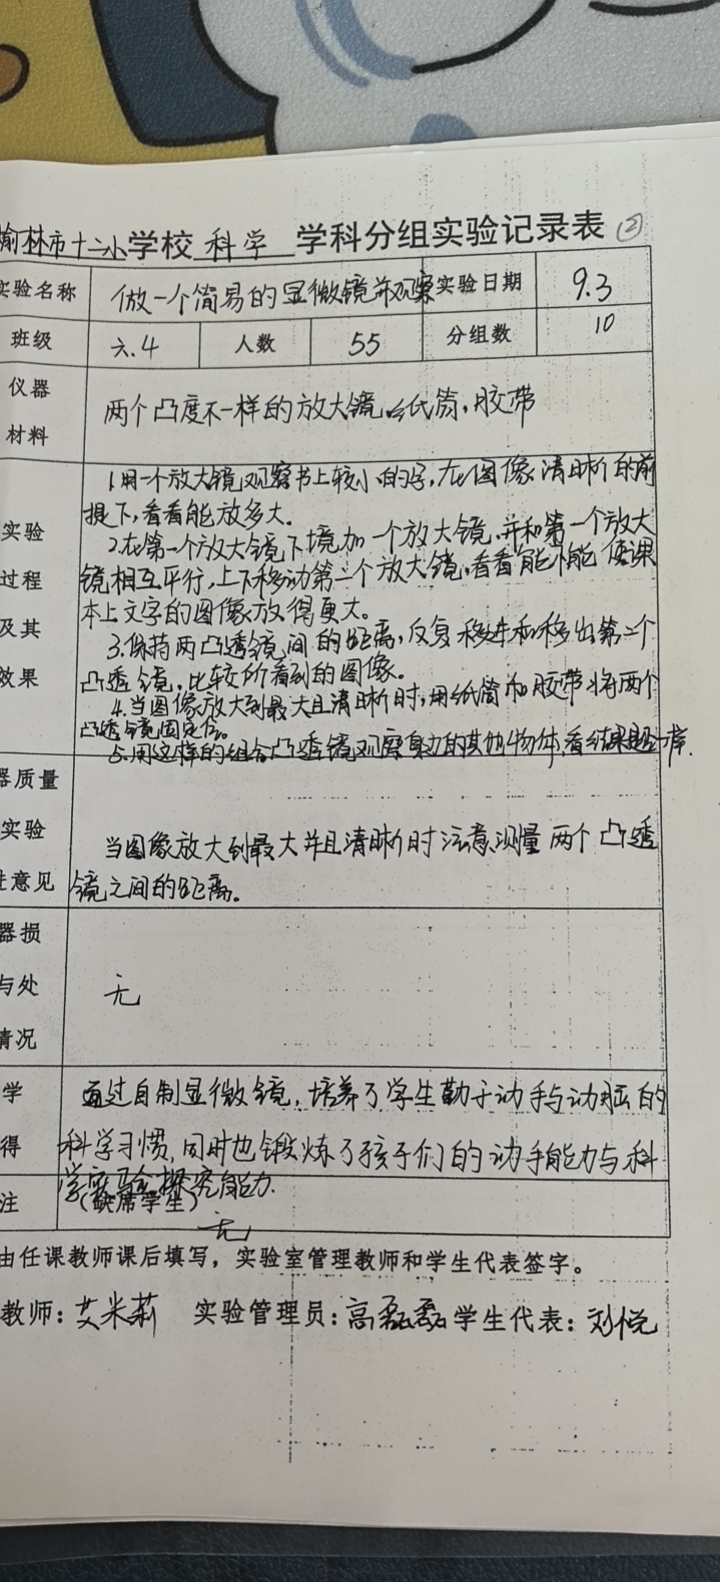 榆林市十二小学校 科学 学科分组实验记录表 ②
实验名称 做一个简易的显微镜并观察 实验日期 9.3
班级 六.4 人数 55 分组数 10
仪器
材料
两个凸度不一样的放大镜、纸筒、胶带
实验
过程
及其
效果
1.用一个放大镜观察书上较小的字,在图像清晰的前
提下,看看能放多大。
2.在第一个放大镜下增加一个放大镜,并和第一个放大
镜相互平行,上下移动第二个放大镜,看看能不能使课
本上文字的图像放得更大。
3.保持两凸透镜间的距离,反复移进和移出第二个
凸透镜,比较所看到的图像。
4.当图像放大到最大且清晰时,用纸筒和胶带将两个
凸透镜固定住。
5.用这样的组合凸透镜观察身边的其他物体,看结果
器质量
实验
进意见
当图像放大到最大并且清晰时注意测量两个凸透
镜之间的距离。
器损
与处
情况
无
学
得
通过自制显微镜,培养了学生勤于动手与动脑的
科学习惯,同时也锻炼了孩子们的动手能力与科
学实验探究能力.
注 (缺席学生)
无
由任课教师课后填写,实验室管理教师和学生代表签字。
教师:艾米莉 实验管理员:高磊磊 学生代表:刘悦